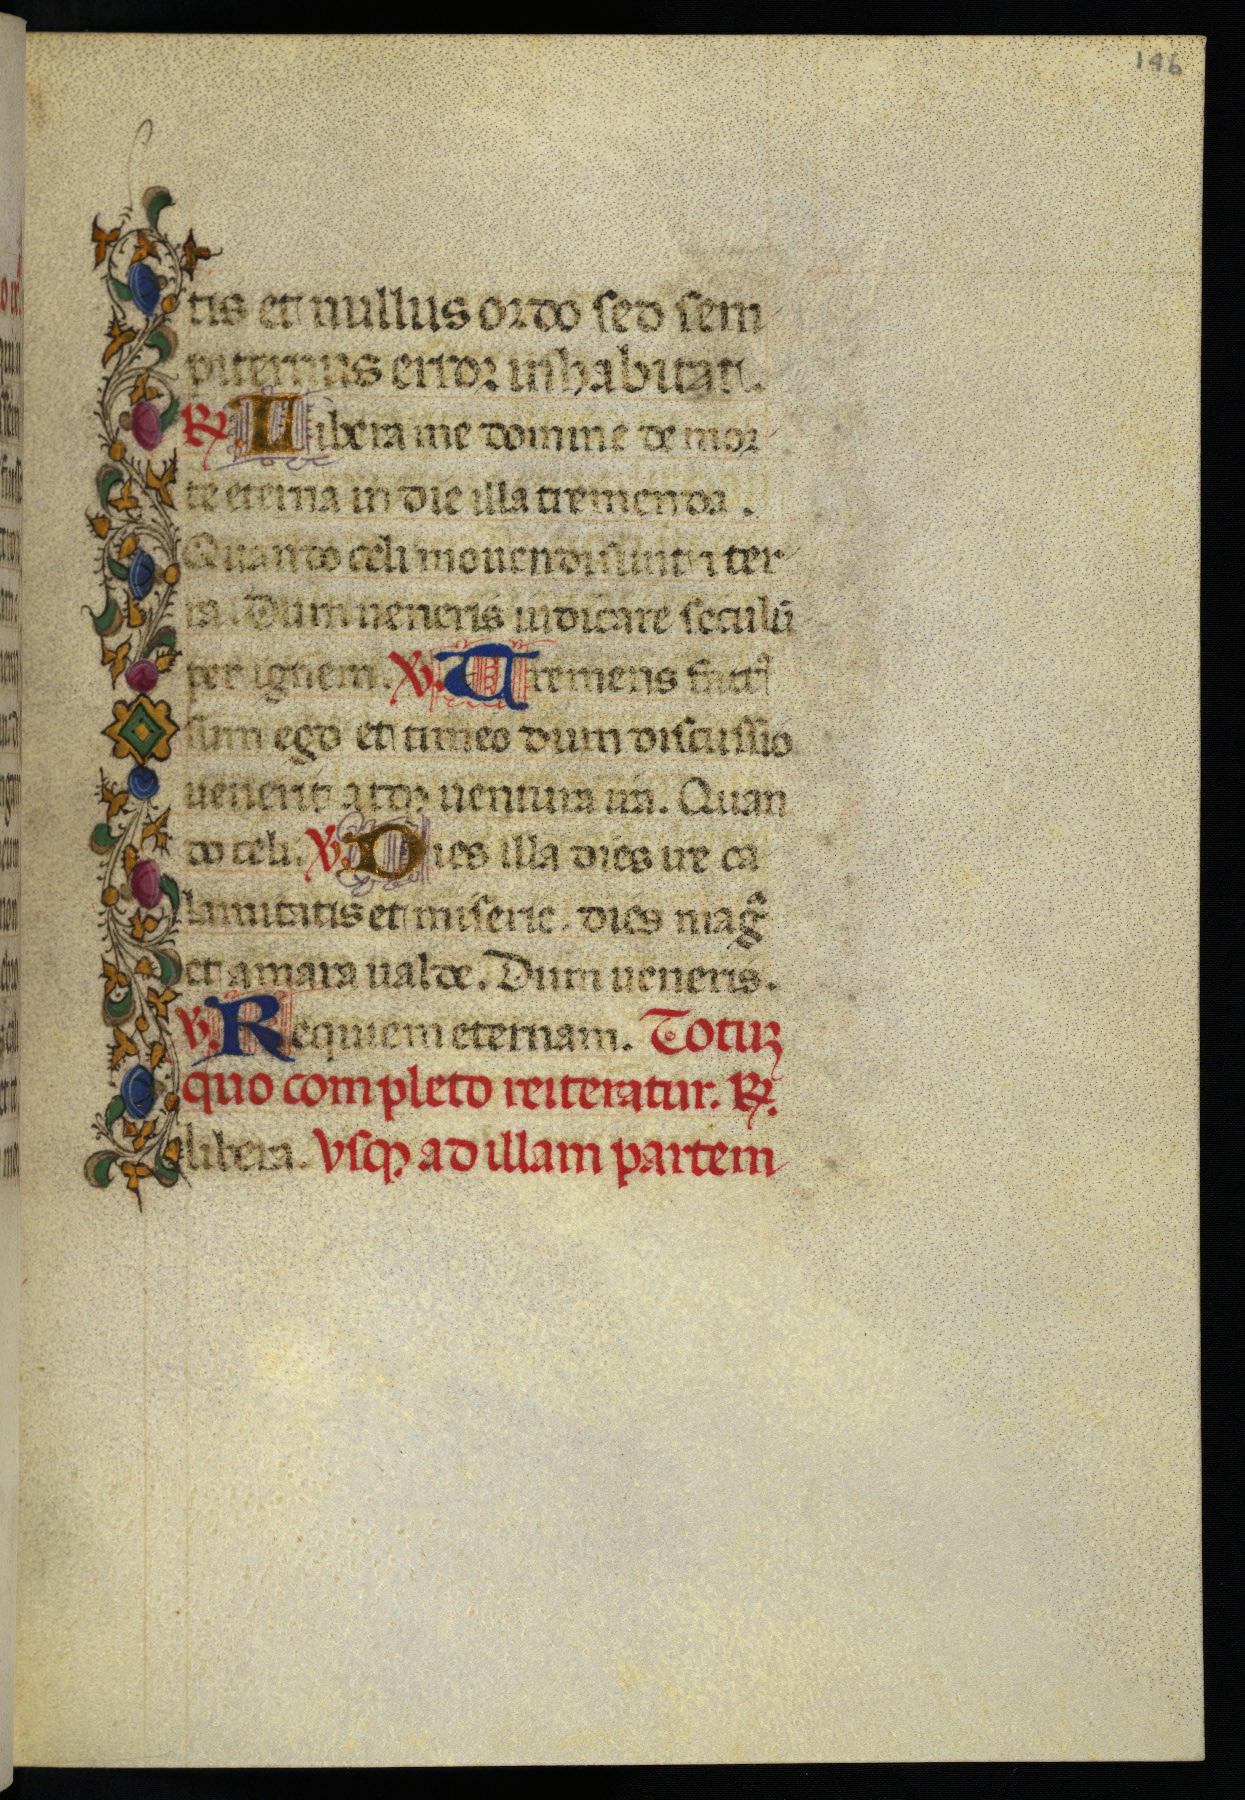 146
tis et nullus ordo sed sem
piternus error inhabitat.
℟. Libera me domine de mor
te eterna in die illa tremenda.
Quando celi mouendi sunt ⁊ ter
ra. Dum ueneris iudicare seculū
per ignem. ℣. Tremens factꝰ
sum ego et timeo dum discussio
uenerit atqꝫ uentura ira. Quan
do celi. ℣. Dies illa dies ire ca
lamitatis et miserie. dies magᷓ
et amara ualde. Dum ueneris.
℣. Requiem eternam. Totuꝫ
quo completo reiteratur. ℟.
libera. vsqꝫ ad illam partem